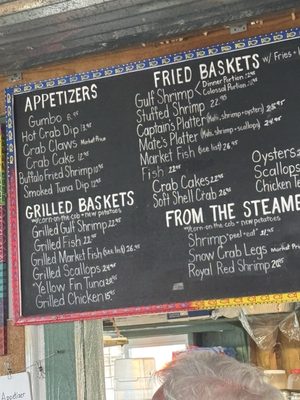 APPETIZERS
Gumbo 8.95
Hot Crab Dip 13.95
Crab Claws Market Price
Crab Cake 12.95
Buffalo Fried Shrimp 10.95
Smoked Tuna Dip 12.95
GRILLED BASKETS
w/corn-on-the-cob + new potatoes
Grilled Gulf Shrimp 22.95
Grilled Fish 22.95
Grilled Market Fish (see list) 26.95
Grilled Scallops 24.95
*Yellow Fin Tuna 28.95
Grilled Chicken 18.95
FRIED BASKETS w/ Fries +
Gulf Shrimp Dinner Portion
Colossal Portion
Stuffed Shrimp 22.95
Captain's Platter 25.95
Mate's Platter (fish, shrimp + scallops) 24.95
Market Fish (see list) 26.95
Fish 22.95
Crab Cakes 22.95
Soft Shell Crab 26.95
Oysters
Scallops
Chicken
FROM THE STEAME
w/corn on the cob + new potatoes
Shrimp "peel + eat"
Snow Crab Legs Market
Royal Red Shrimp
Appetizer